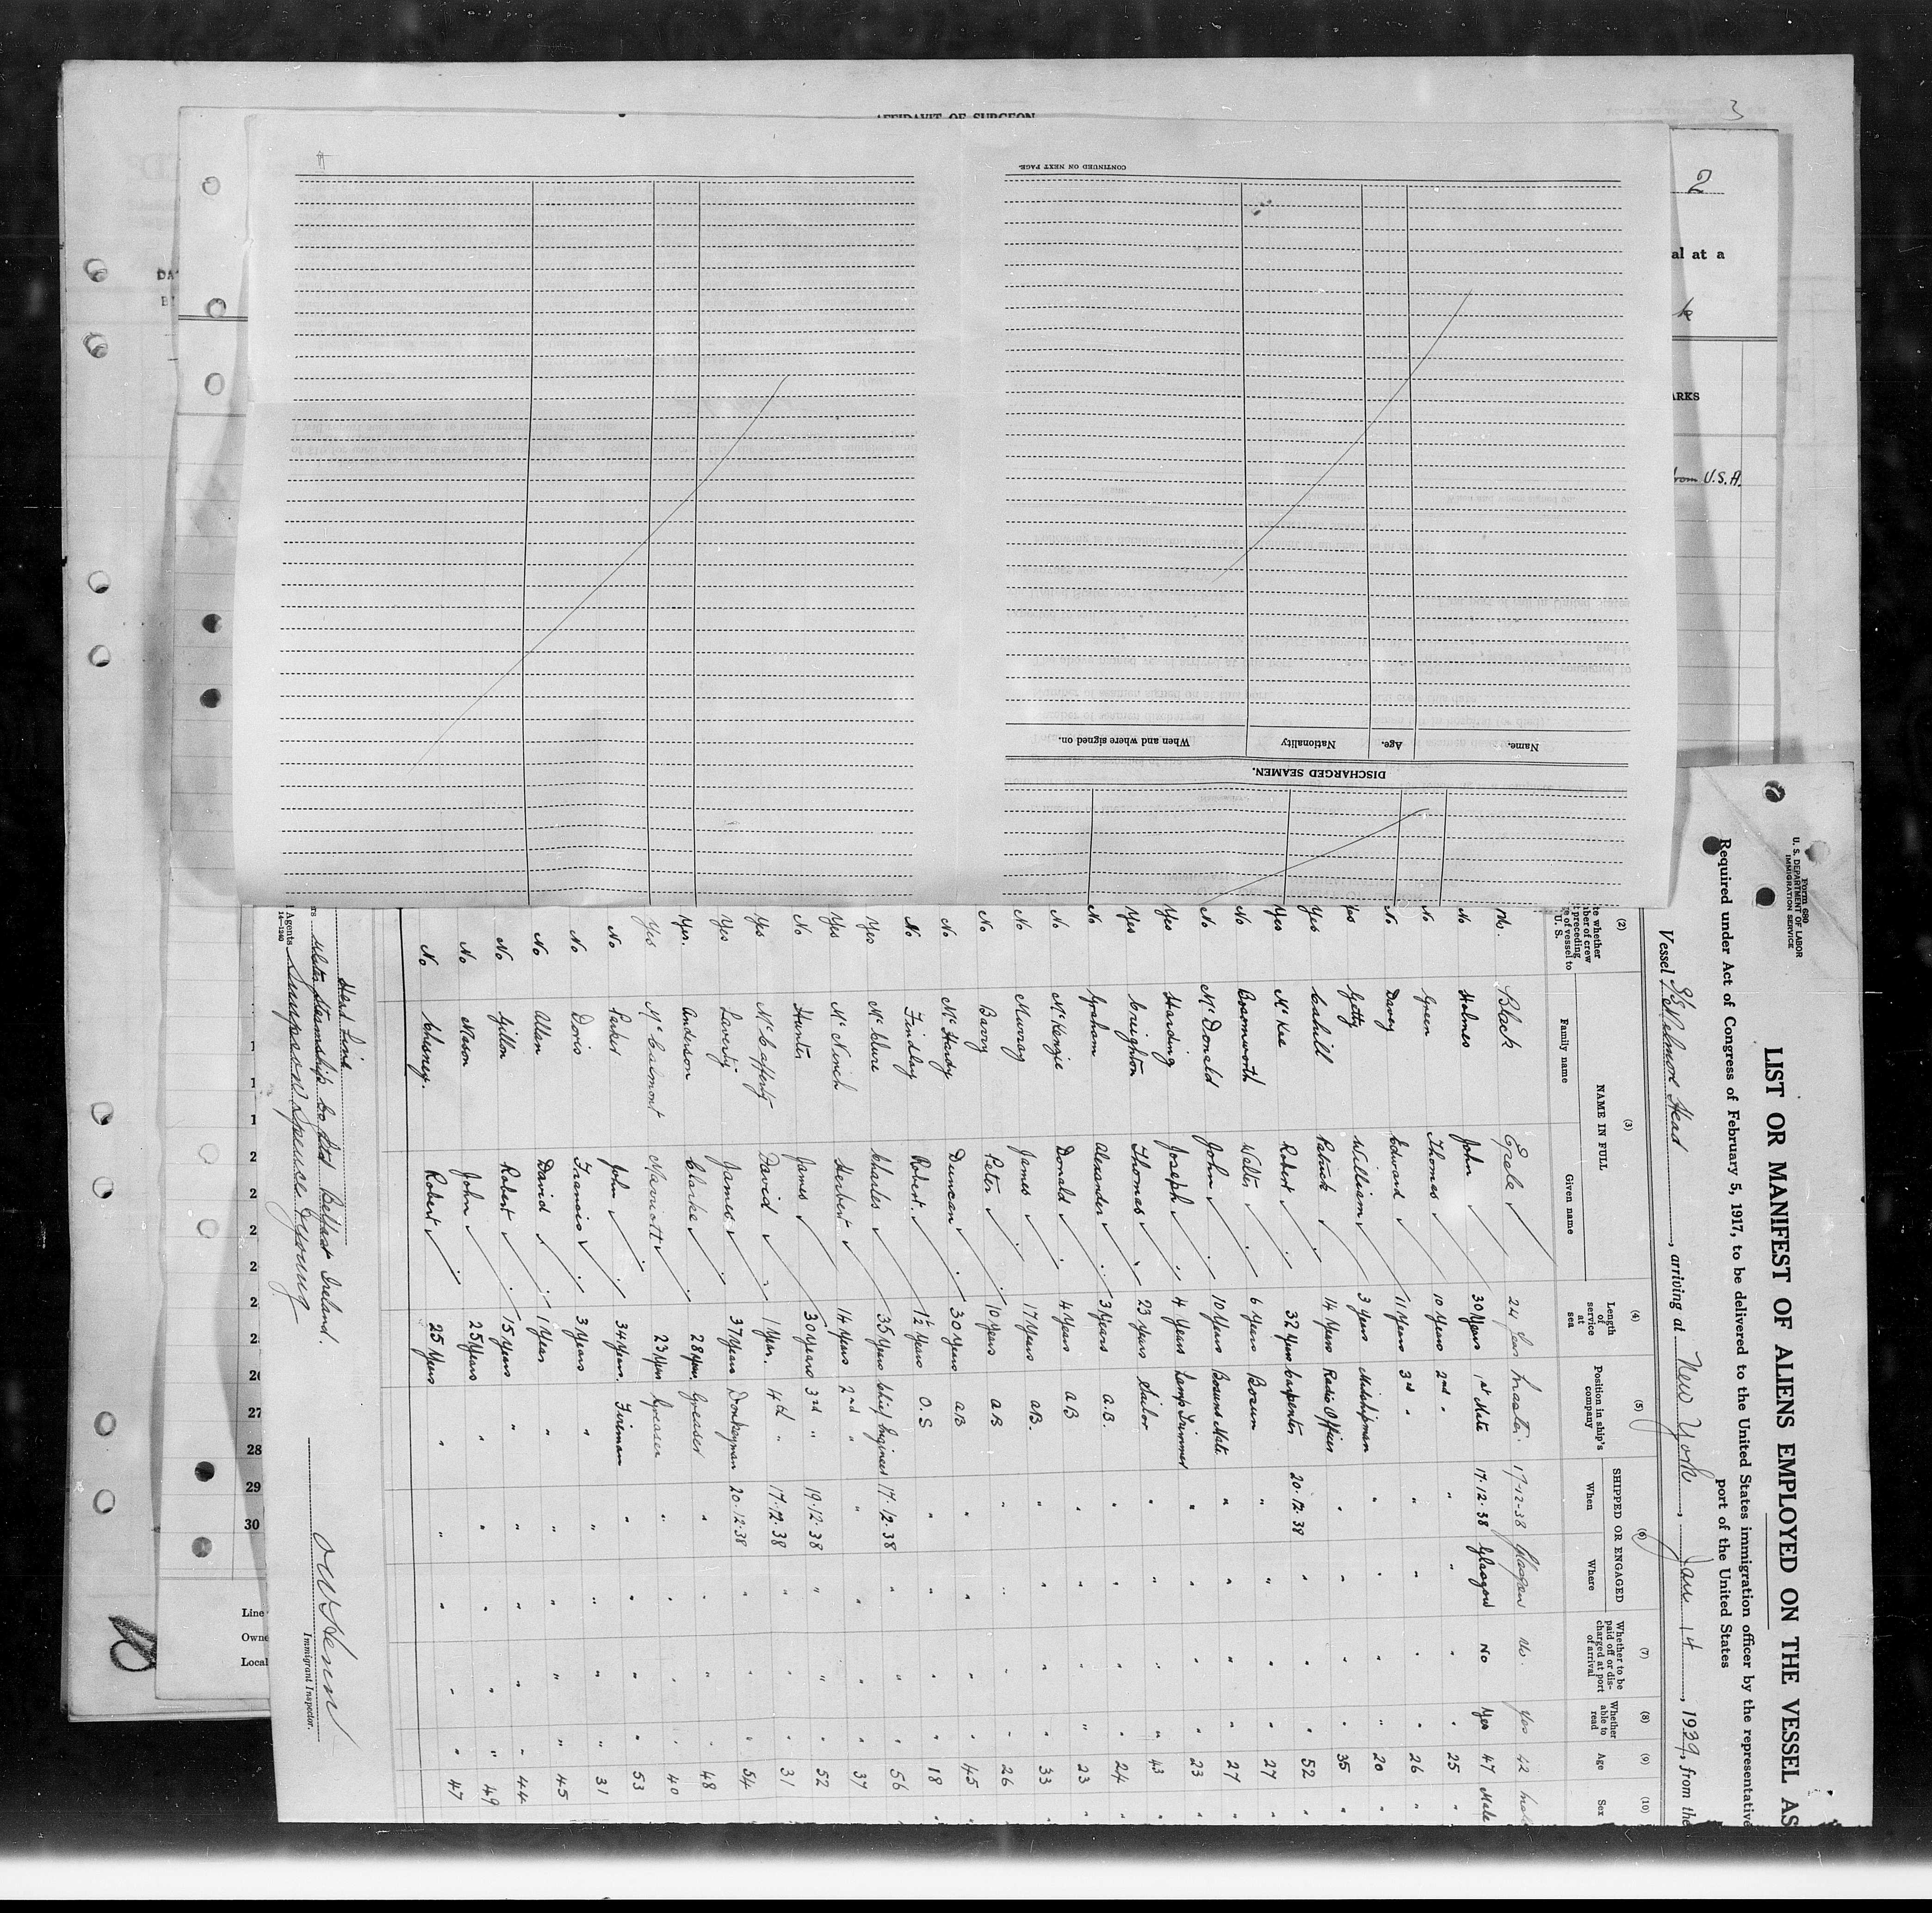 3
AFFIDAVIT OF SURGEON
2
al at a
k
ARKS
from U.S.A.
CONTINUED ON NEXT PAGE.
Name.
Age.
Nationality
When and where signed on.
DISCHARGED SEAMEN.
Form 680
U. S. DEPARTMENT OF LABOR
IMMIGRATION SERVICE
LIST OR MANIFEST OF ALIENS EMPLOYED ON THE VESSEL AS
Required under Act of Congress of February 5, 1917, to be delivered to the United States immigration officer by the representative
port of the United States
Vessel SS Melmore Head, arriving at New York, Jan 14, 1939, from the
(2) (3) (4) (5) (6) (7) (8) (9) (10)
NAME IN FULL
Family name
Given name
Length of service at sea
Position in ship's company
SHIPPED OR ENGAGED
When
Where
Whether to be paid off or discharged at port of arrival
Whether able to read
Age
Sex
No. Black 24 Master 17-12-38 Glasgow No. Yes 42 Male
No Holmes John 30 Years 1st Mate 17.12.38 Glasgow No Yes 47 Male
No Green Thomas 10 Years 2nd " " " " " 25 "
No Davey Edward 11 Years 3rd " " " " " 26 "
Yes Getty William 3 Years Midshipman " " " " 20 "
Yes Cahill Patrick 14 Years Radio Officer " " " " 35 "
Yes McKee Robert 32 Years Carpenter 20.12.38 " " " 52 "
No Bosomworth Walter 6 Years Bosun " " " " 27 "
No McDonald John 10 Years Bosuns Mate " " " " 27 "
Yes Harding Joseph 4 Years Lamp Trimmer " " " " 23 "
Yes Creighton Thomas 23 Years Sailor " " " " 43 "
No Graham Alexander 3 Years A.B. " " " " 24 "
No McKenzie Donald 4 Years AB " " " " 23 "
No Murray James 17 Years AB. " " " " 33
No Barry Peter 10 Years AB " " " " 26
No McHardy Duncan 30 Years AB " " " " 45 "
No Findlay Robert 1½ Years O.S " " " " 18 "
Yes McClure Charles 35 Years Chief Engineer 17.12.38 " " " 56
Yes McNinch Herbert 14 Years 2nd " " " " " 37
No Hunter James 30 Years 3rd " 19.12.38 " " " 52
Yes McCafferty David 1 Year. 4th " 17.12.38 " " " 31
Yes Laverty James 37 Years Donkeyman 20.12.38 " " " 54
Yes. Anderson Clarke 28 Years Greaser " " " " 48
Yes McCalmont Marriott 23 Years Greaser " " " " 40
No Parker John 34 Years. Fireman " " " " 53
No Doris Francis 3 Years " " " " " 31
No Allan David 1 Year " " " " " 45
No Gillon Robert 15 Years " " " " " 44
No Mason John 25 Years " " " " " 49
No Chesney. Robert 25 Years " " " " " 47
27
28
29
30
Head Line
Ulster Steamship Co Ltd Belfast Ireland.
Agents Simpson Spence & Young
14-1240
Immigrant Inspector.
Line
Owne
Local